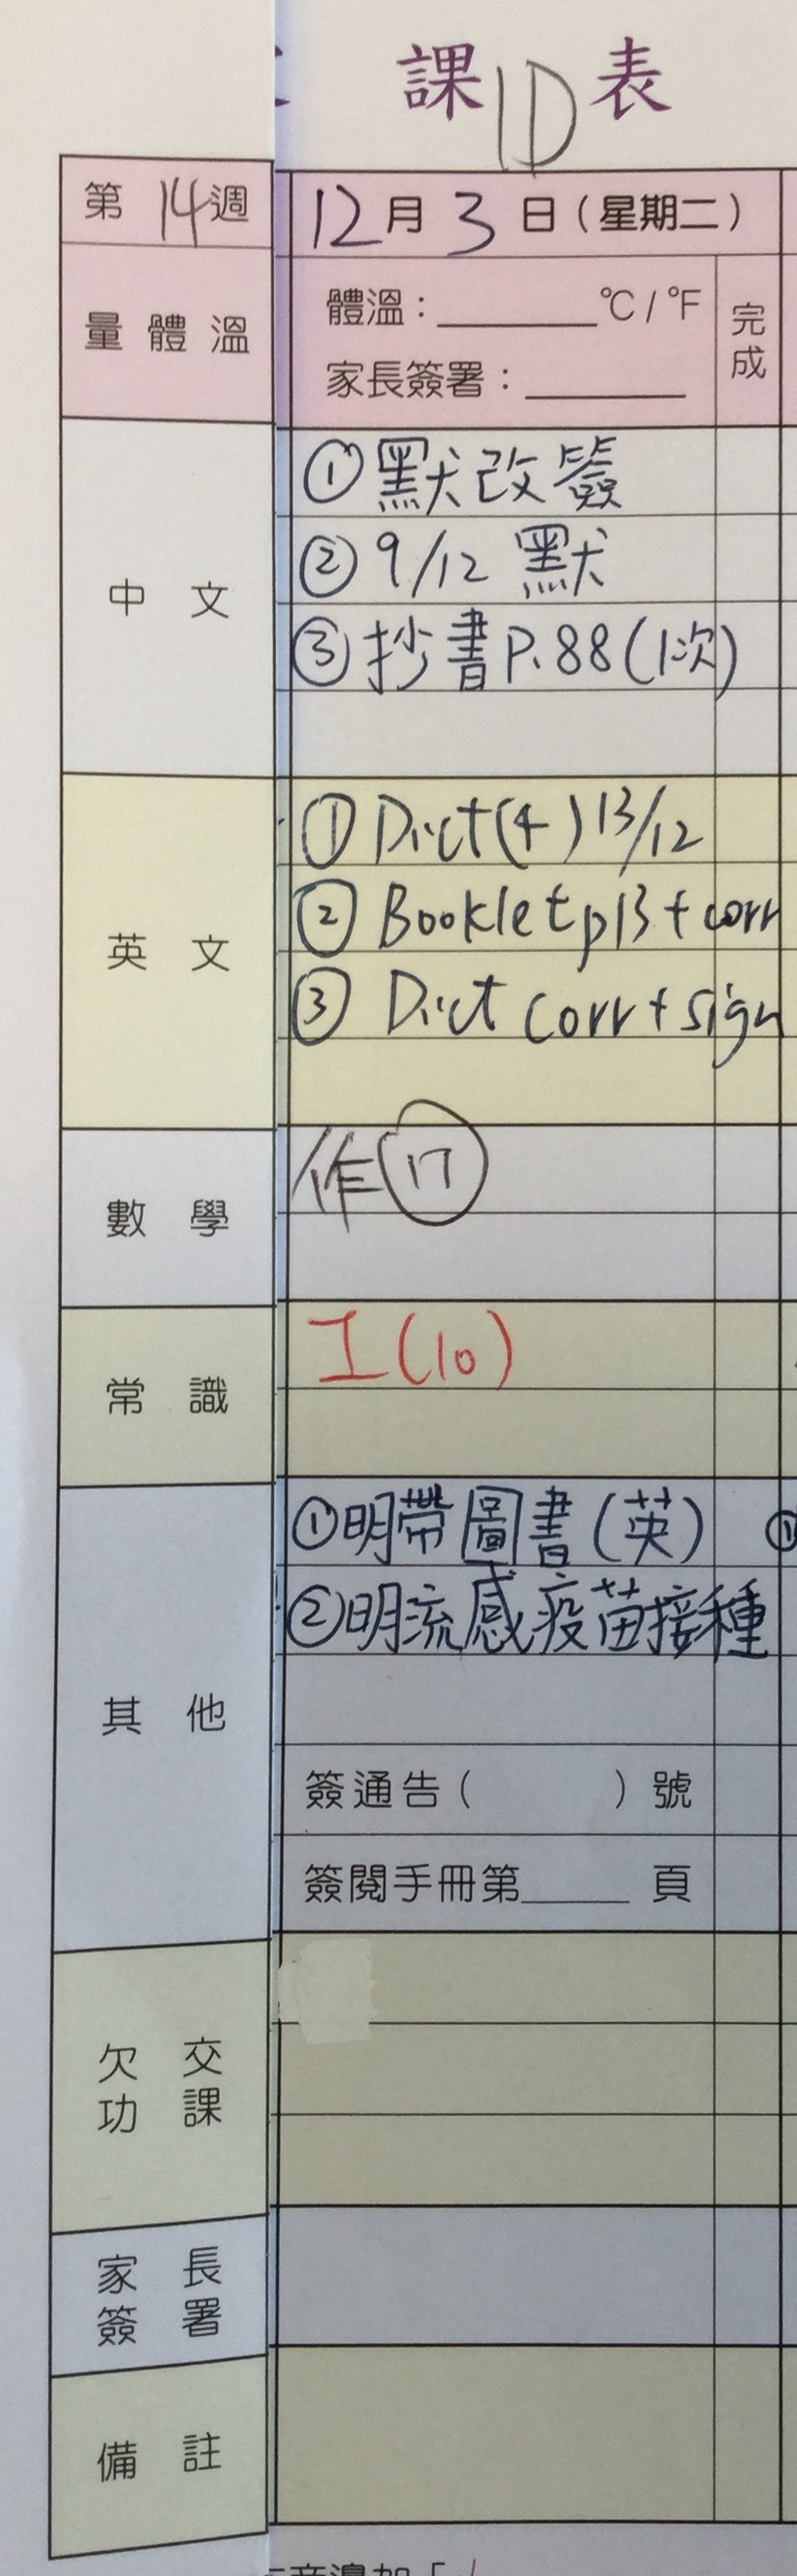 課 1D 表
第 14 週
12 月 3 日（星期二）
量體溫
體溫：______°C / °F
家長簽署：______
完成
中文
① 默改簽
② 9/12 默
③ 抄書 P.88 (1次)
英文
① Dict(4) 13/12
② Booklet p13 + corr
③ Dict corr + sign
數學
作 ⑰
常識
工(10)
其他
①明帶圖書(英)
①
②明流感疫苗接種
簽通告（ ）號
簽閱手冊第______頁
欠交功課
家長簽署
備註